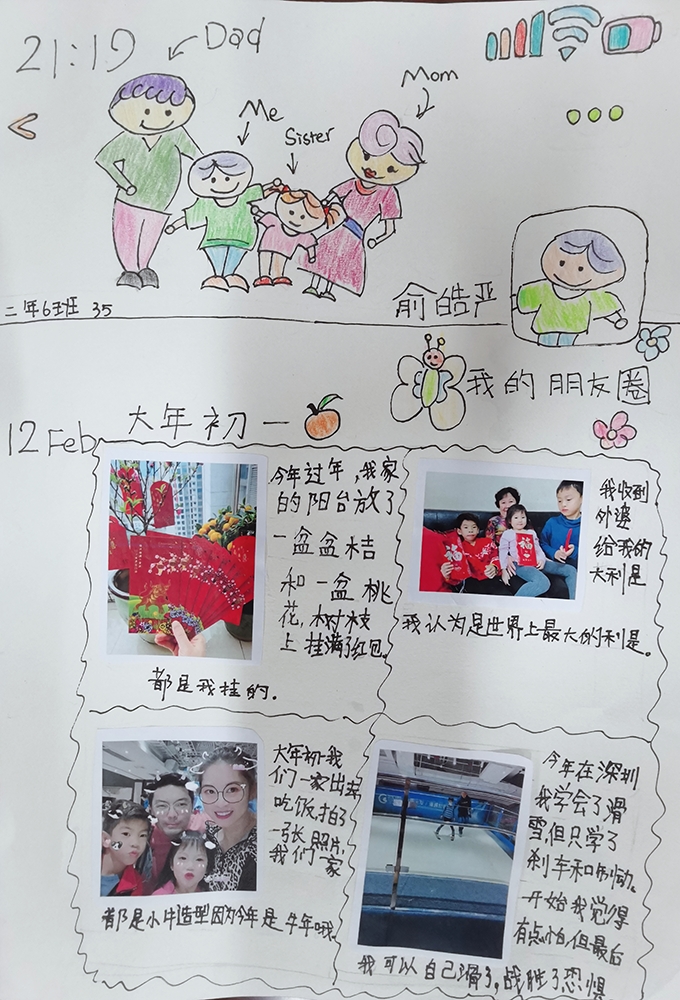 21:19
Dad
Me
Sister
Mom
二年6班 35
俞皓严
我的朋友圈
12 Feb
大年初一
今年过年，我家
的阳台放了
一盆盆桔
和一盆桃
花，树枝
上挂满了红包。
都是我挂的。
我收到
外婆
给我的
大利是
我认为是世界上最大的利是。
大年初一我
们一家出去
吃饭，拍了
一张照片，
我们一家
都是小牛造型因为今年是牛年哦
今年在深圳
我学会了滑
雪，但只学了
刹车和制动。
一开始我觉得
有点怕，但最后
我可以自己滑了，战胜了恐惧